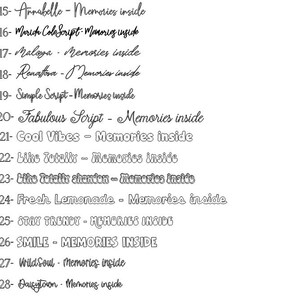 15- Annabelle - Memories inside
16- March Cole Script - Memories inside
17- Malaya - Memories inside
18- Renattoa - Memories inside
19- Simple Script - Memories inside
20- Fabulous Script - Memories inside
21- Cool Vibes - Memories inside
22- Like Totally - Memories inside
23- Like Totally shadow - Memories inside
24- Fresh Lemonade - Memories inside
25- STAY TRENDY - MEMORIES INSIDE
26- SMILE - MEMORIES INSIDE
27- WildSoul - Memories inside
28- Daisytown - Memories inside